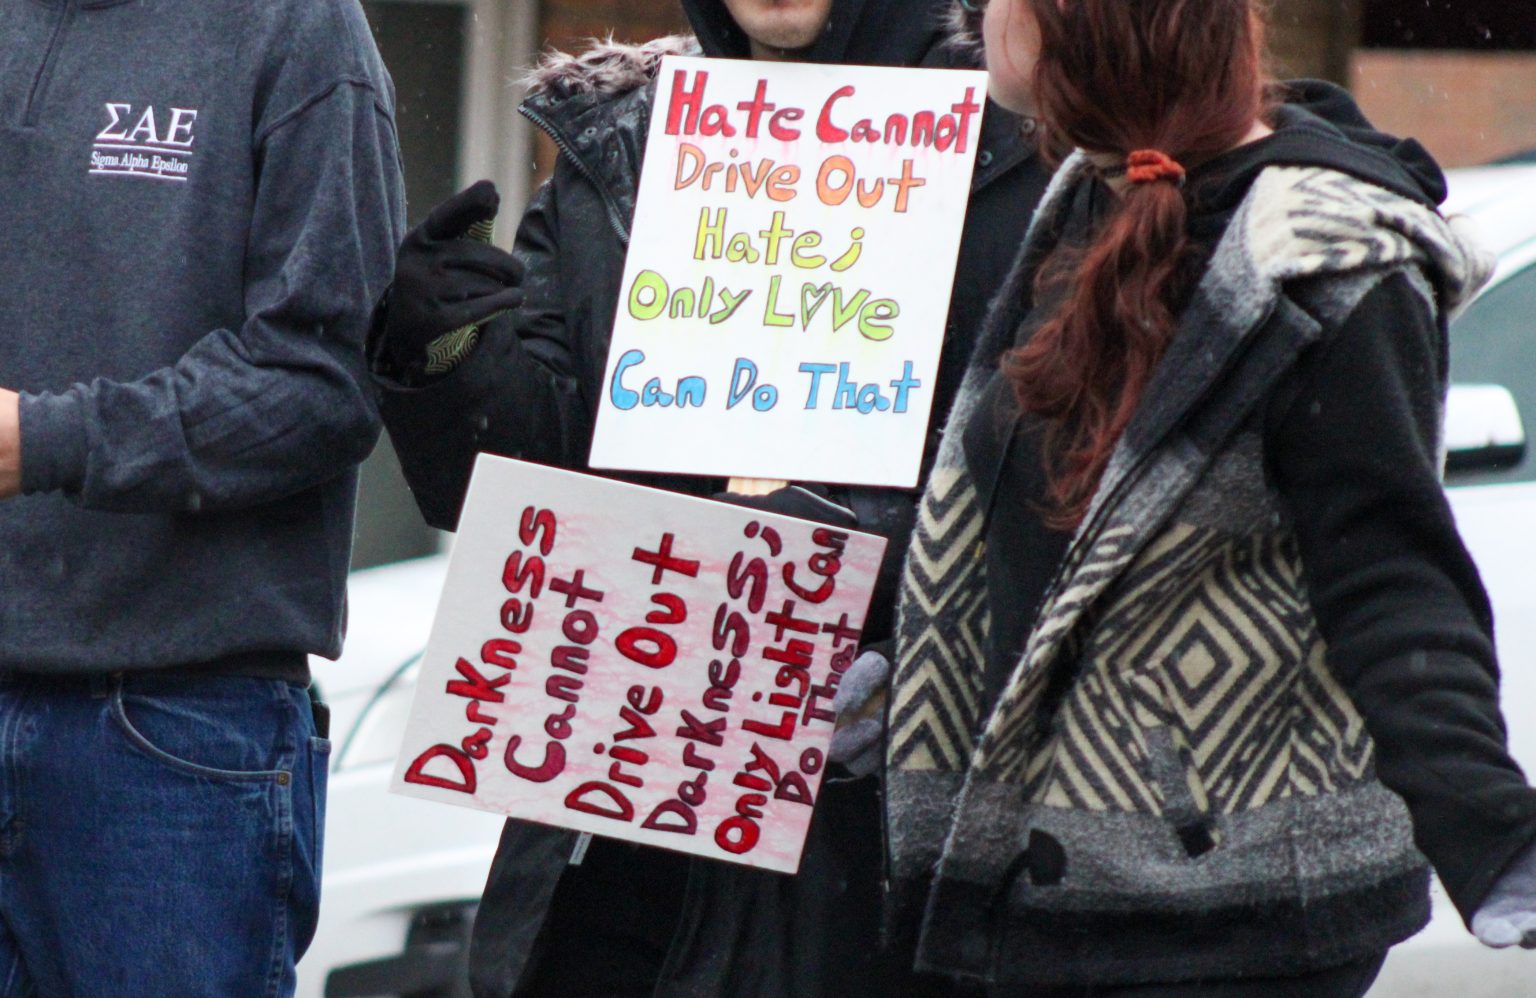 ΣΑΕ
Sigma Alpha Epsilon
Hate Cannot
Drive Out
Hate;
Only Love
Can Do That
Darkness
Cannot
Drive Out
Darkness;
Only Light Can
Do That